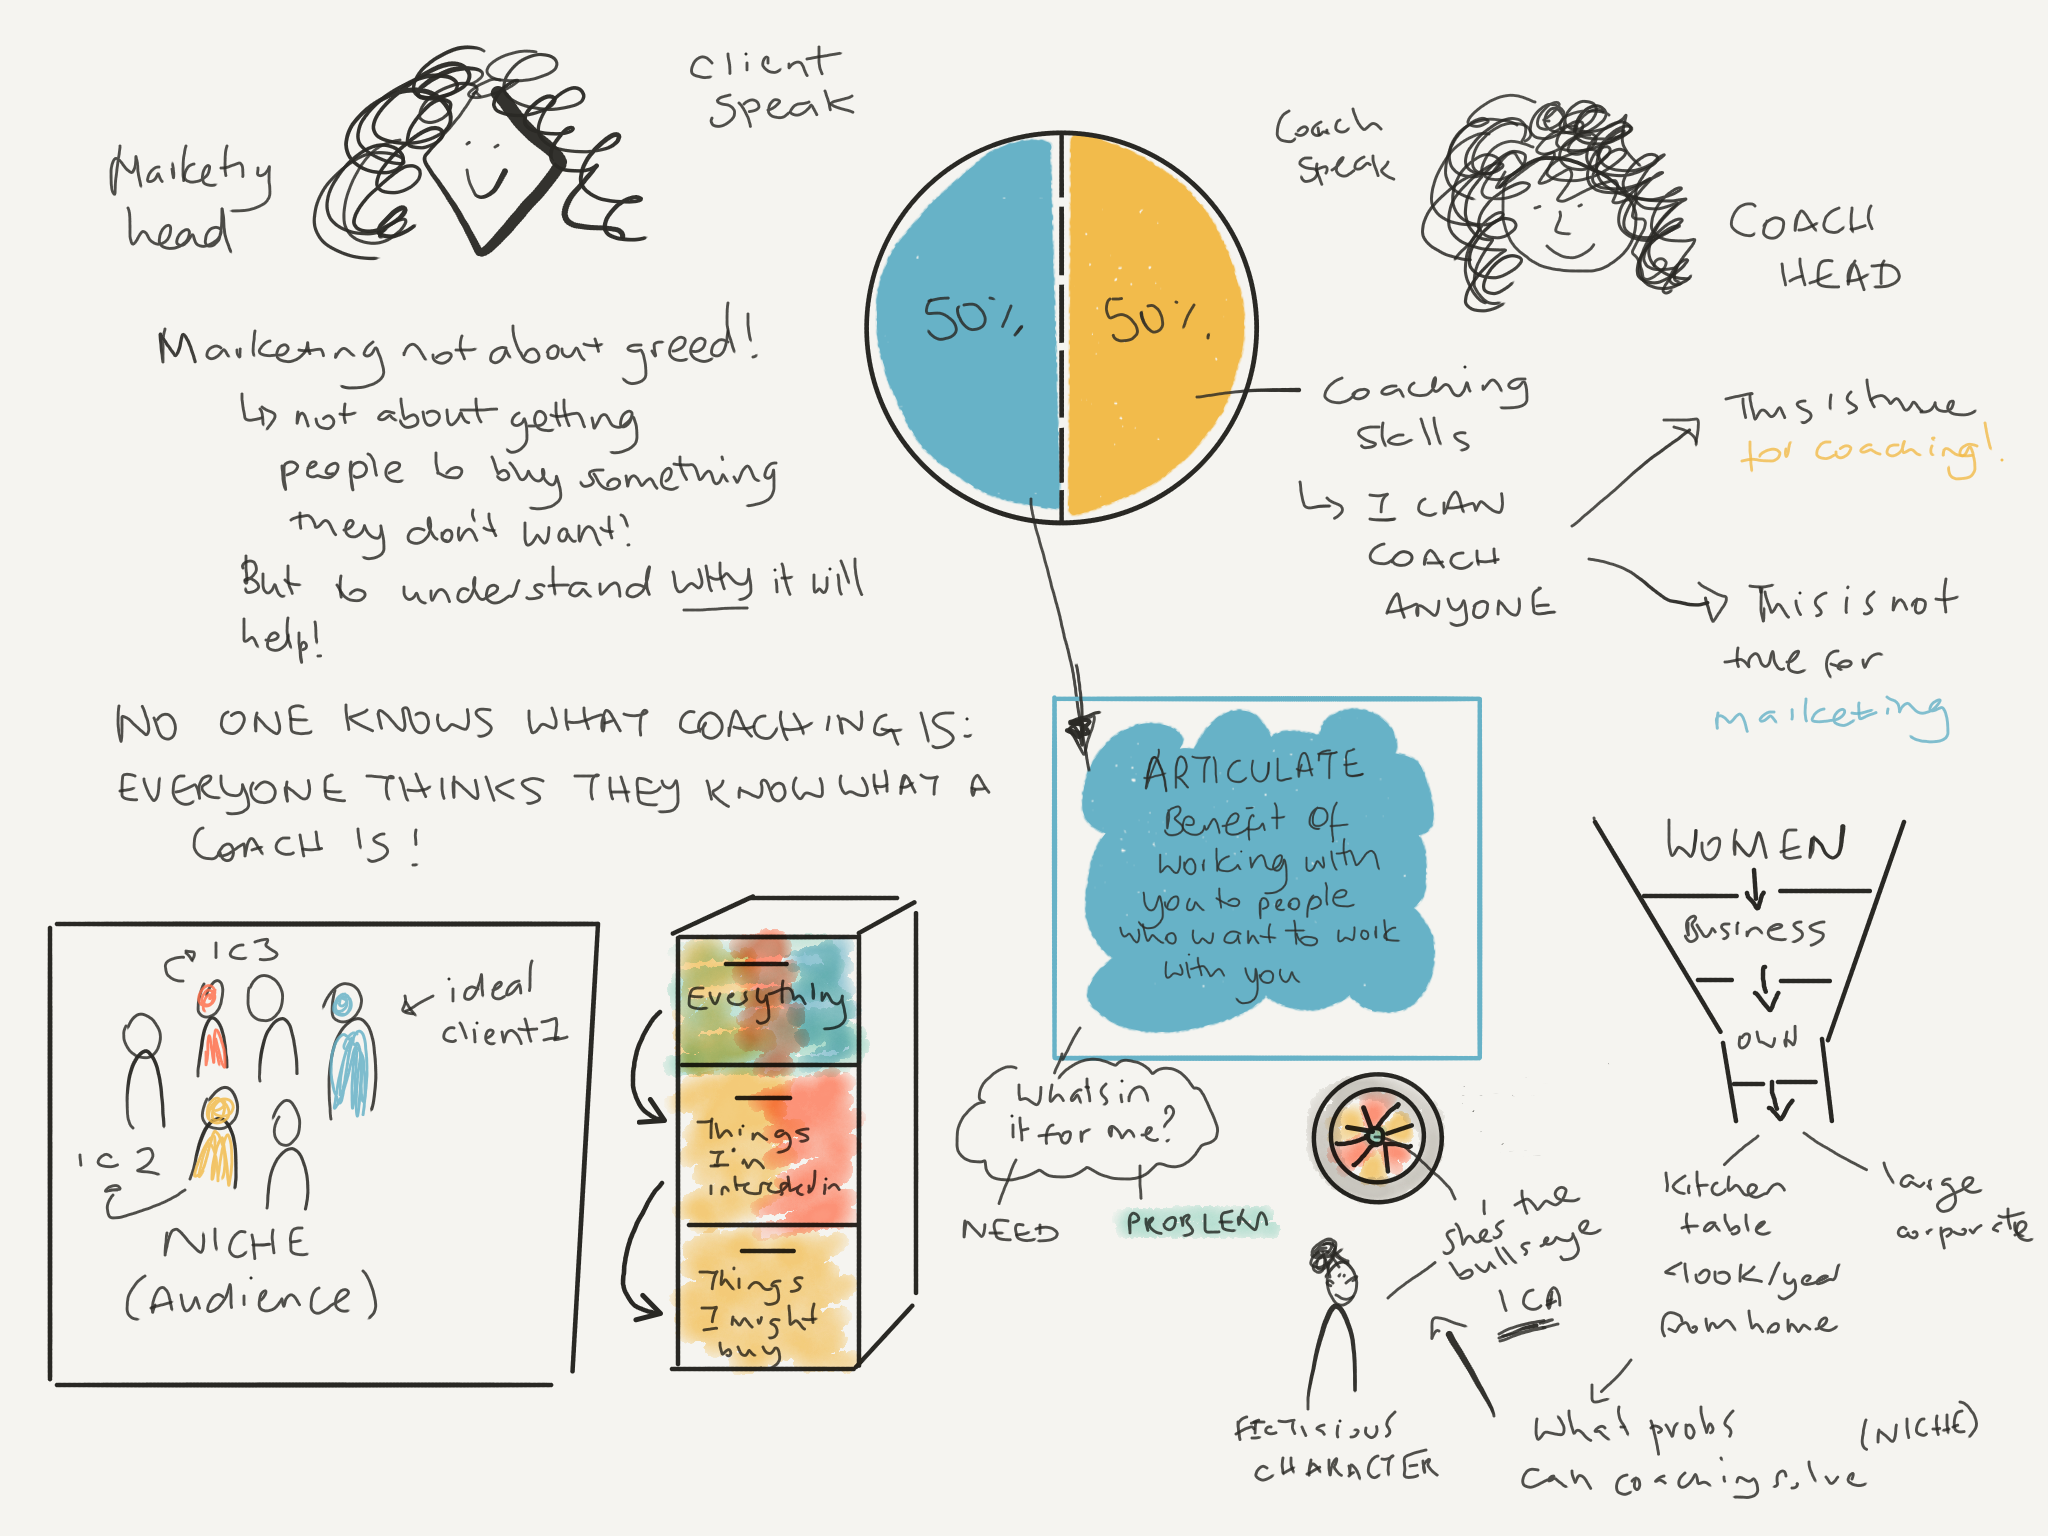 client
speak
Marketing
head
Coach
speak
COACH
HEAD
50%
50%
Marketing not about greed!
↳ not about getting
people to buy something
they don't want!
But to understand WHY it will
help!
Coaching
skills
↳ I CAN
COACH
ANYONE
This is true
for coaching!
This is not
true for
marketing
NO ONE KNOWS WHAT COACHING IS:
EVERYONE THINKS THEY KNOW WHAT A
COACH IS!
ARTICULATE
Benefit Of
working with
you to people
who want to work
with you
WOMEN
Business
OWN
Kitchen
table
<100K/year
from home
large
corporate
IC3
ideal
client 1
IC2
NICHE
(Audience)
Everything
Things
I'm
interested in
Things
I might
buy
Whats in
it for me?
NEED
PROBLEM
shes the
bullseye
ICA
FICTICIOUS
CHARACTER
What probs
can coaching solve
(NICHE)